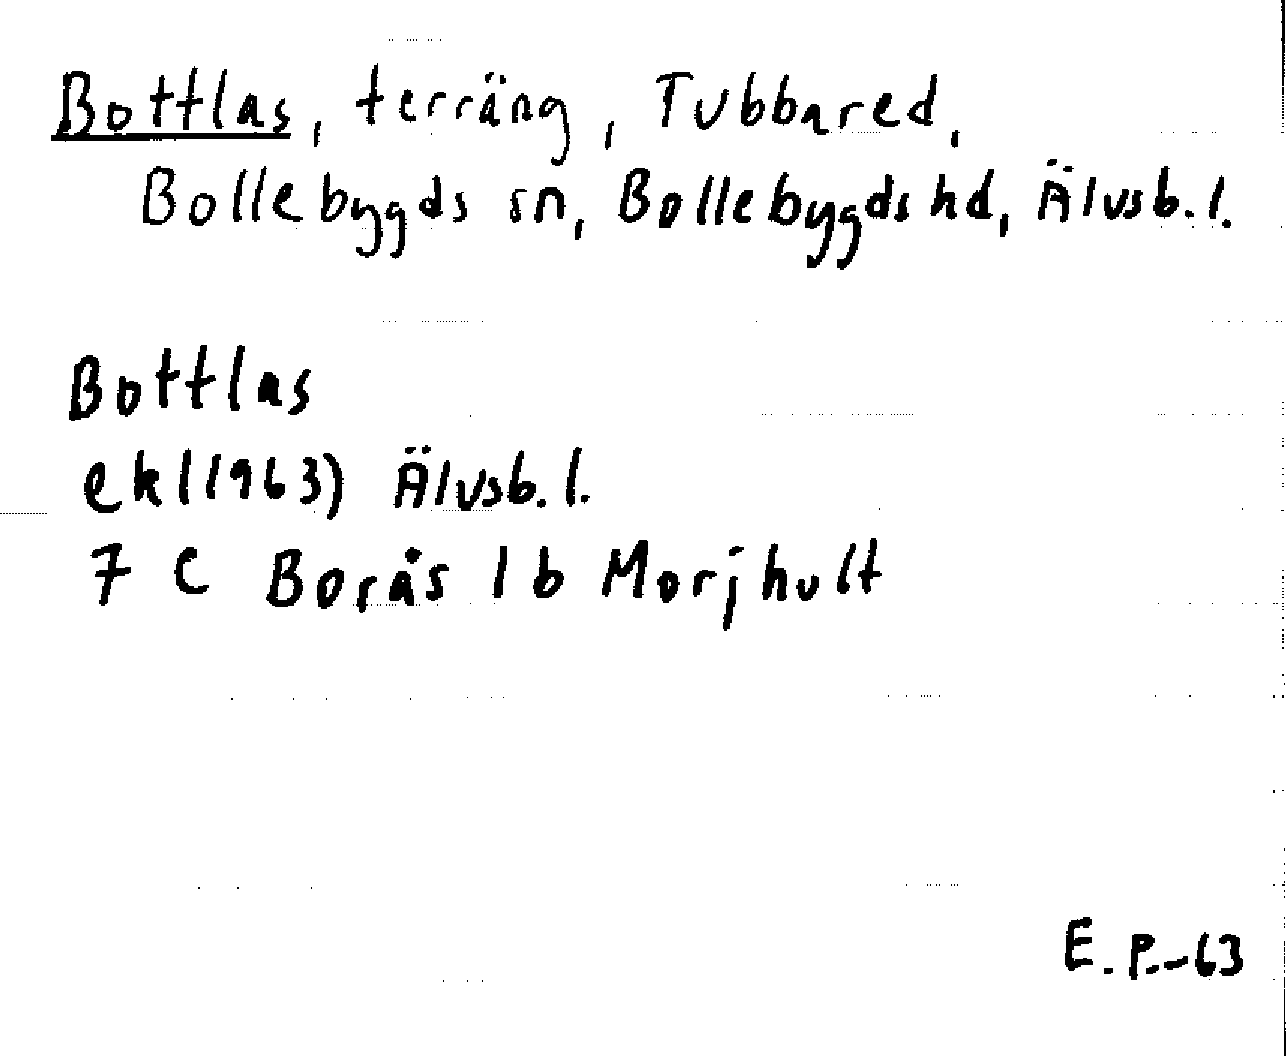 Bottlas, terräng, Tubbared,
Bollebygds sn, Bollebygds hd, Älvsb. l.
Bottlas
ekl (1963) Älvsb. l.
7 C Borås 1 b Morjhult
E. P.-63